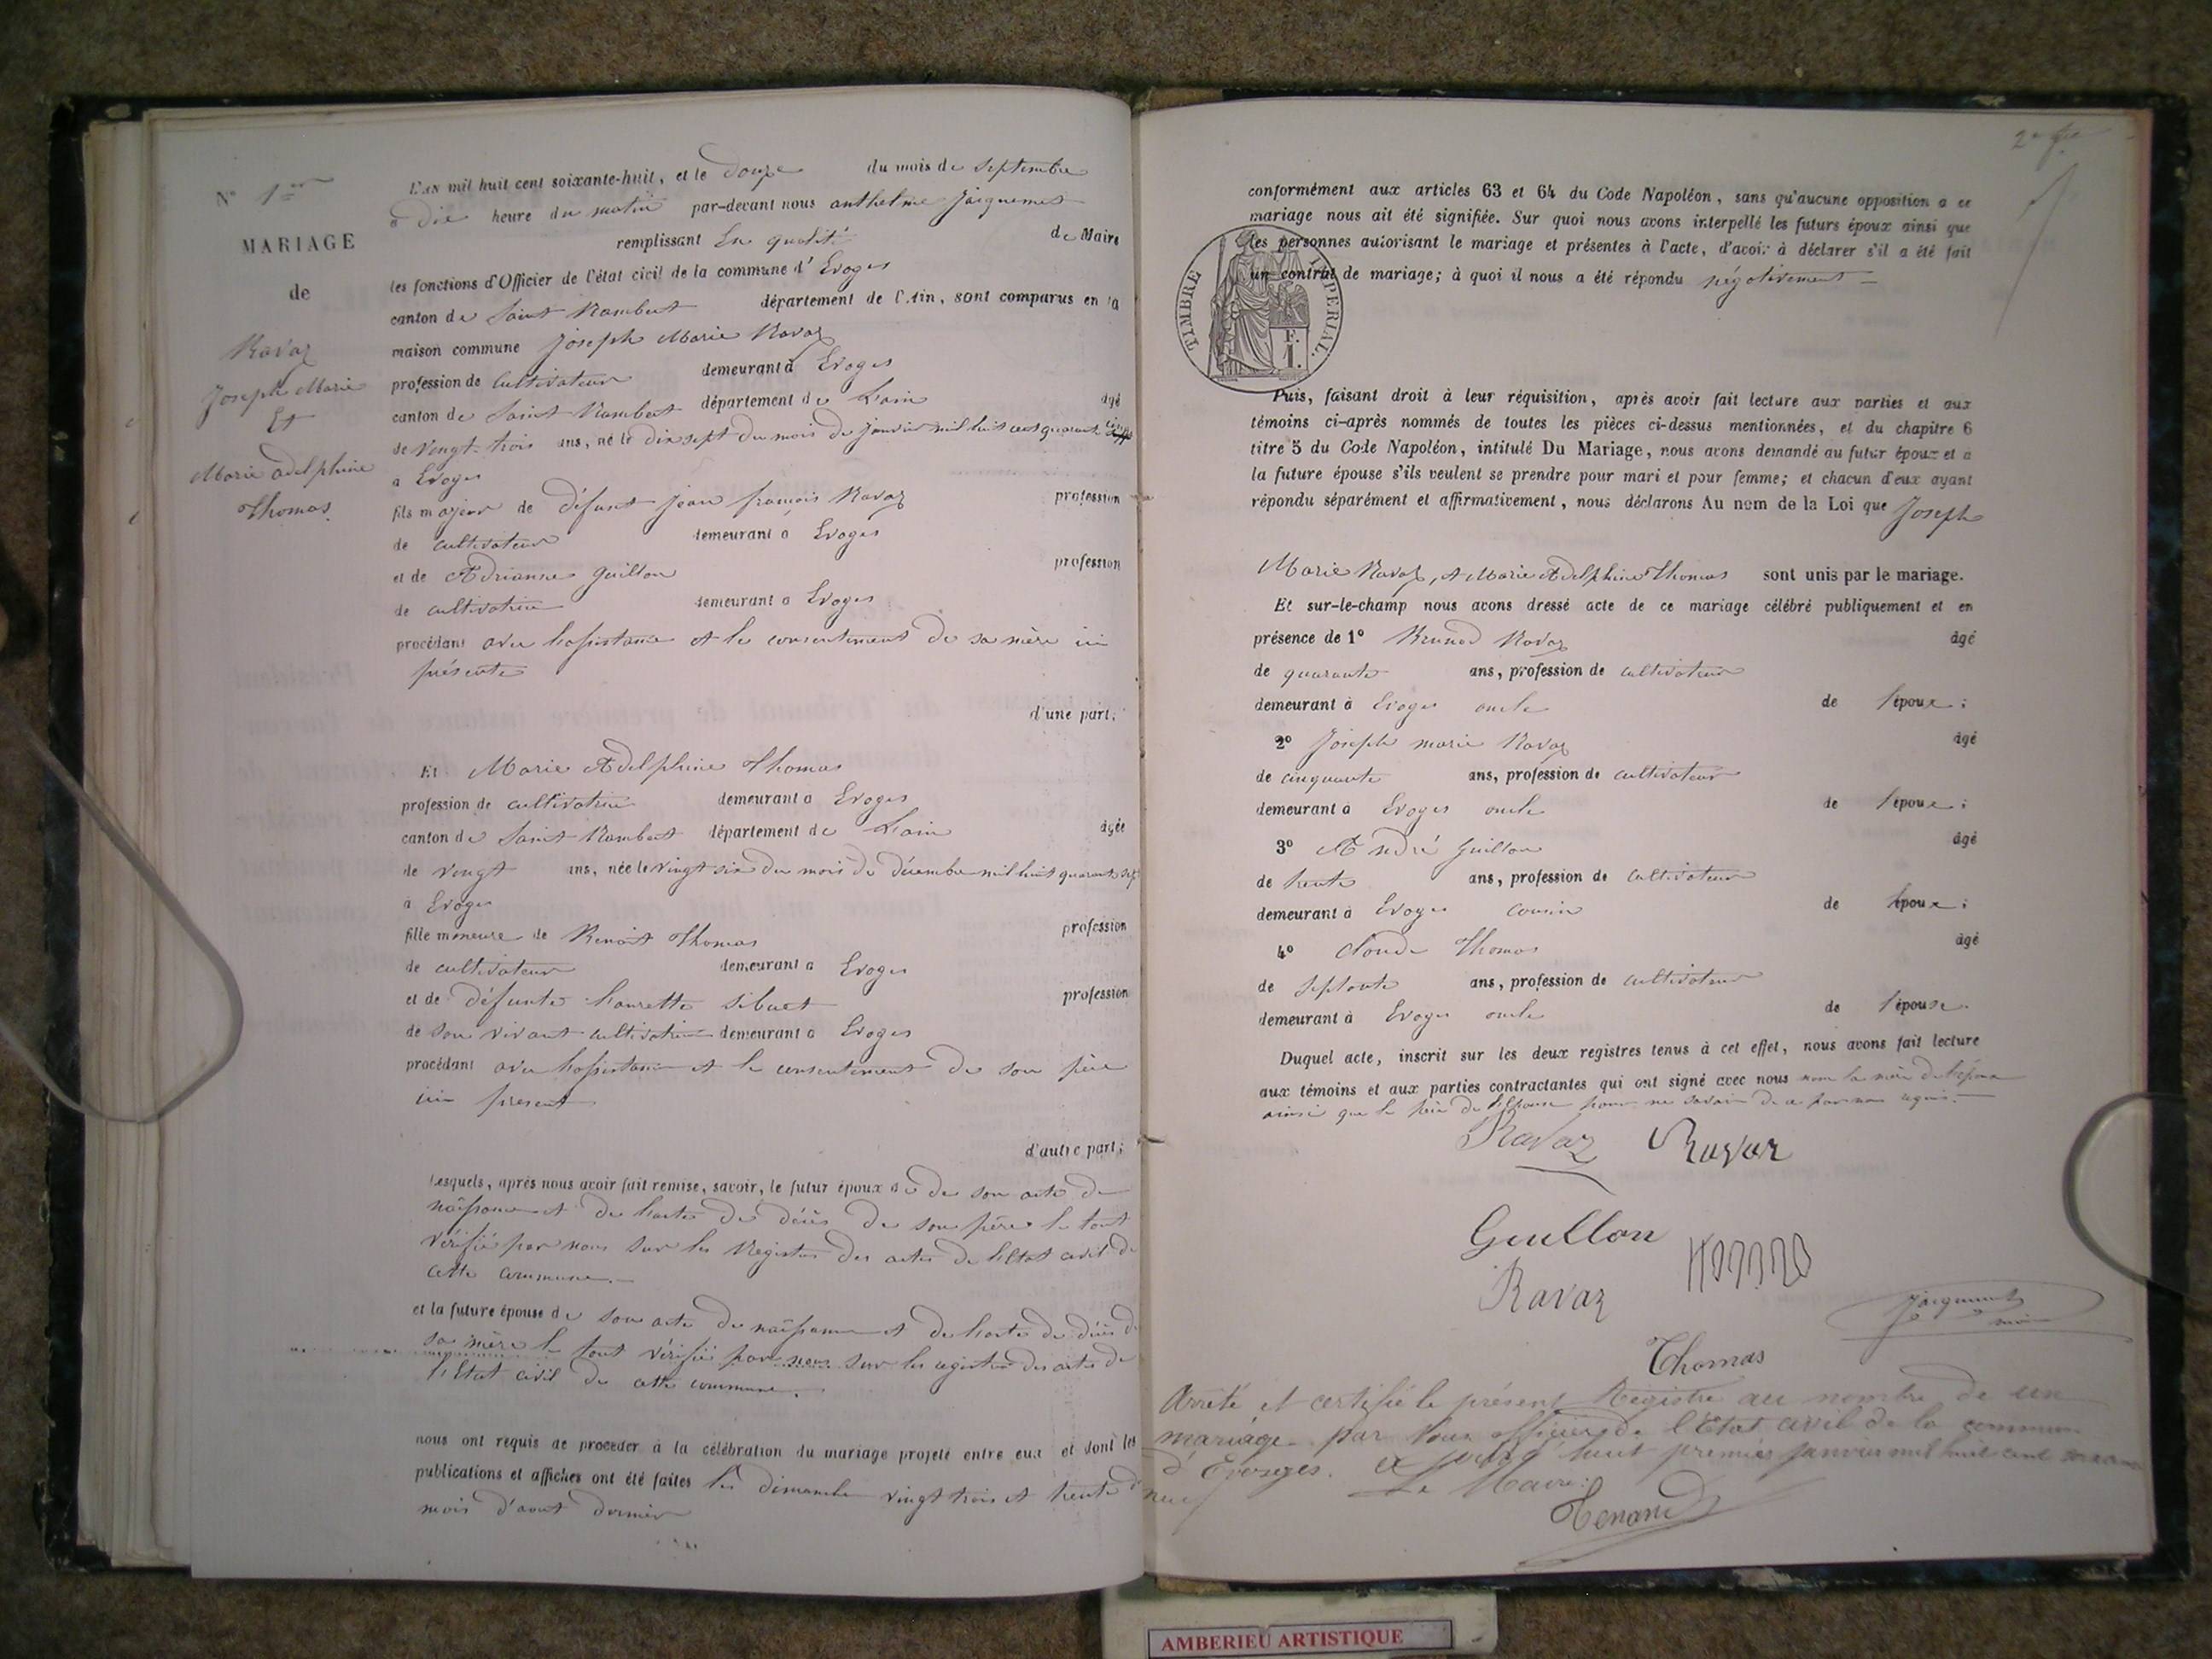 N° 1er
MARIAGE
de
Ravaz
Joseph Marie
Et
Marie adelphine
Thomas
L'an mil huit cent soixante-huit, et le douze du mois de septembre
à dix heure du matin par-devant nous anthelme Jacquemet
remplissant En qualité de Maire
les fonctions d'Officier de l'état civil de la commune d'Evoges
canton de Saint Rambert département de l'Ain, sont comparus en la
maison commune Joseph Marie Ravaz
profession de cultivateur demeurant à Evoges
canton de Saint Rambert département de L'ain âgé
de vingt-trois ans, né le dix sept du mois de janvier mil huit cent quarante cinq
à Evoges
fils majeur de défunt Jean françois Ravaz profession
de cultivateur demeurant à Evoges
et de Adrianne Guillon profession
de cultivatrice demeurant à Evoges
procédant avec l'assistance et le consentement de sa mère ici
présente
d'une part;
Et Marie Adelphine Thomas
profession de cultivatrice demeurant à Evoges
canton de Saint Rambert département de L'ain âgée
de vingt ans, née le vingt six du mois de décembre mil huit quarante sept
à Evoges
fille mineure de Benoit Thomas profession
de cultivateur demeurant à Evoges
et de défunte Laurette Sibuet profession
de son vivant cultivatrice demeurant à Evoges
procédant avec l'assistance et le consentement de son père
ici présent
d'autre part;
Lesquels, après nous avoir fait remise, savoir, le futur époux de son acte de
naissance et de l'acte de décès de son père le tout
vérifié par nous sur les Registres des actes de l'Etat civil de
cette commune.
et la future épouse de son acte de naissance et de l'acte de décès de
sa mère le tout vérifié par nous sur les registres des actes de
l'Etat civil de cette commune.
nous ont requis de procéder à la célébration du mariage projeté entre eux et dont les
publications et affiches ont été faites les dimanche vingt trois et trente d
mois d'aout dernier
conformément aux articles 63 et 64 du Code Napoléon, sans qu'aucune opposition à ce
mariage nous ait été signifiée. Sur quoi nous avons interpellé les futurs époux ainsi que
les personnes autorisant le mariage et présentes à l'acte, d'avoir à déclarer s'il a été fait
un contrat de mariage; à quoi il nous a été répondu négativement
TIMBRE IMPERIAL.
F.
1.
Puis, faisant droit à leur réquisition, après avoir fait lecture aux parties et aux
témoins ci-après nommés de toutes les pièces ci-dessus mentionnées, et du chapitre 6
titre 5 du Code Napoléon, intitulé Du Mariage, nous avons demandé au futur époux et à
la future épouse s'ils veulent se prendre pour mari et pour femme; et chacun d'eux ayant
répondu séparément et affirmativement, nous déclarons Au nom de la Loi que Joseph
Marie Ravaz, et Marie Adelphine Thomas sont unis par le mariage.
Et sur-le-champ nous avons dressé acte de ce mariage célébré publiquement et en
présence de 1° Ravaz âgé
de quarante ans, profession de cultivateur
demeurant à Evoges oncle de l'époux;
2° Joseph marie Ravaz âgé
de cinquante ans, profession de cultivateur
demeurant à Evoges oncle de l'époux;
3° André Guillon âgé
de trente ans, profession de cultivateur
demeurant à Evoges cousin de l'époux;
4° Claude Thomas âgé
de septante ans, profession de cultivateur
demeurant à Evoges oncle de l'épouse.
Duquel acte, inscrit sur les deux registres tenus à cet effet, nous avons fait lecture
aux témoins et aux parties contractantes qui ont signé avec nous non la mère de l'époux
ainsi que le père de l'Epouse pour ne savoir de ce par nous requis.
Ravaz Ravaz
Guillon
Ravaz
Jacquemet
maire
Thomas
Arrêté et certifié le présent Registre au nombre de un
mariage par Nous officier de l'Etat civil de la commune
d'Evosges. ce jourd'huit premier Janvier mil huit cent soixante
neuf
Le Maire:
Tenand
AMBERIEU ARTISTIQUE